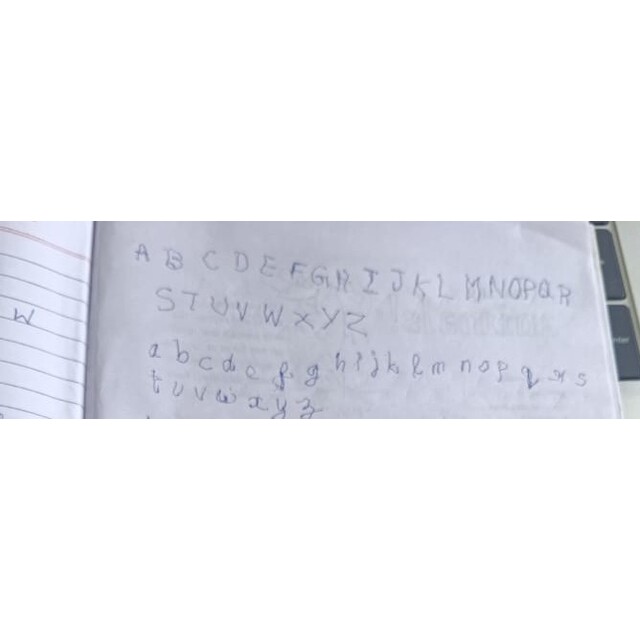 A B C D E F G H I J K L M N O P Q R
S T U V W X Y Z
a b c d e f g h i j k l m n o p q r s
t u v w x y z
M
enter